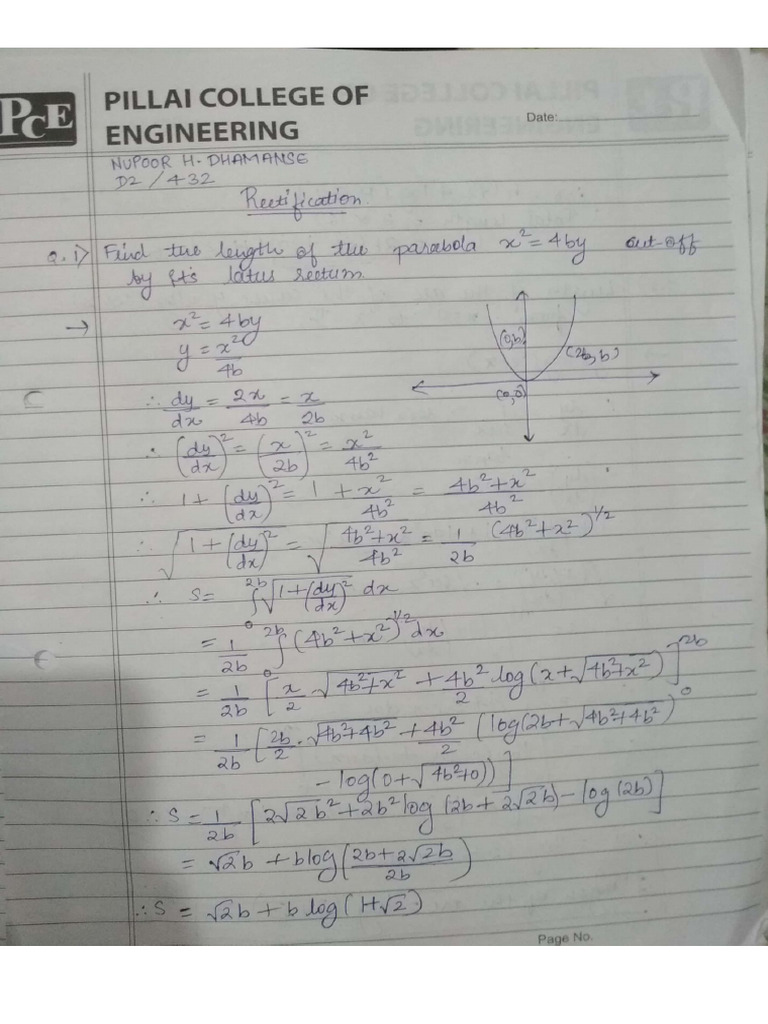 PCE
PILLAI COLLEGE OF
ENGINEERING
Date:
NUPOOR H. DHAMANSE
D2/432
Rectification.
Q.1) Find the length of the parabola x² = 4by cut-off
by it's latus rectum.
→ x² = 4by
y = x²/4b
(0,b)
(2b, b)
(0,0)
∴ dy/dx = 2x/4b = x/2b
∴ (dy/dx)² = (x/2b)² = x²/4b²
∴ 1 + (dy/dx)² = 1 + x²/4b² = 4b²+x²/4b²
∴ √1+(dy/dx)² = √4b²+x²/4b² = 1/2b (4b²+x²)^1/2
∴ S = ∫₀^2b √1+(dy/dx)² dx
= 1/2b ∫₀^2b (4b²+x²)^1/2 dx
= 1/2b [x/2 √4b²+x² + 4b²/2 log(x+√4b²+x²)]₀^2b
= 1/2b [2b/2 · √4b²+4b² + 4b²/2 (log(2b+√4b²+4b²)
- log(0+√4b²+0))]
∴ S = 1/2b [2√2b² + 2b² log(2b+2√2b) - log(2b)]
= √2b + b log(2b+2√2b/2b)
∴ S = √2b + b log(1+√2)
Page No.